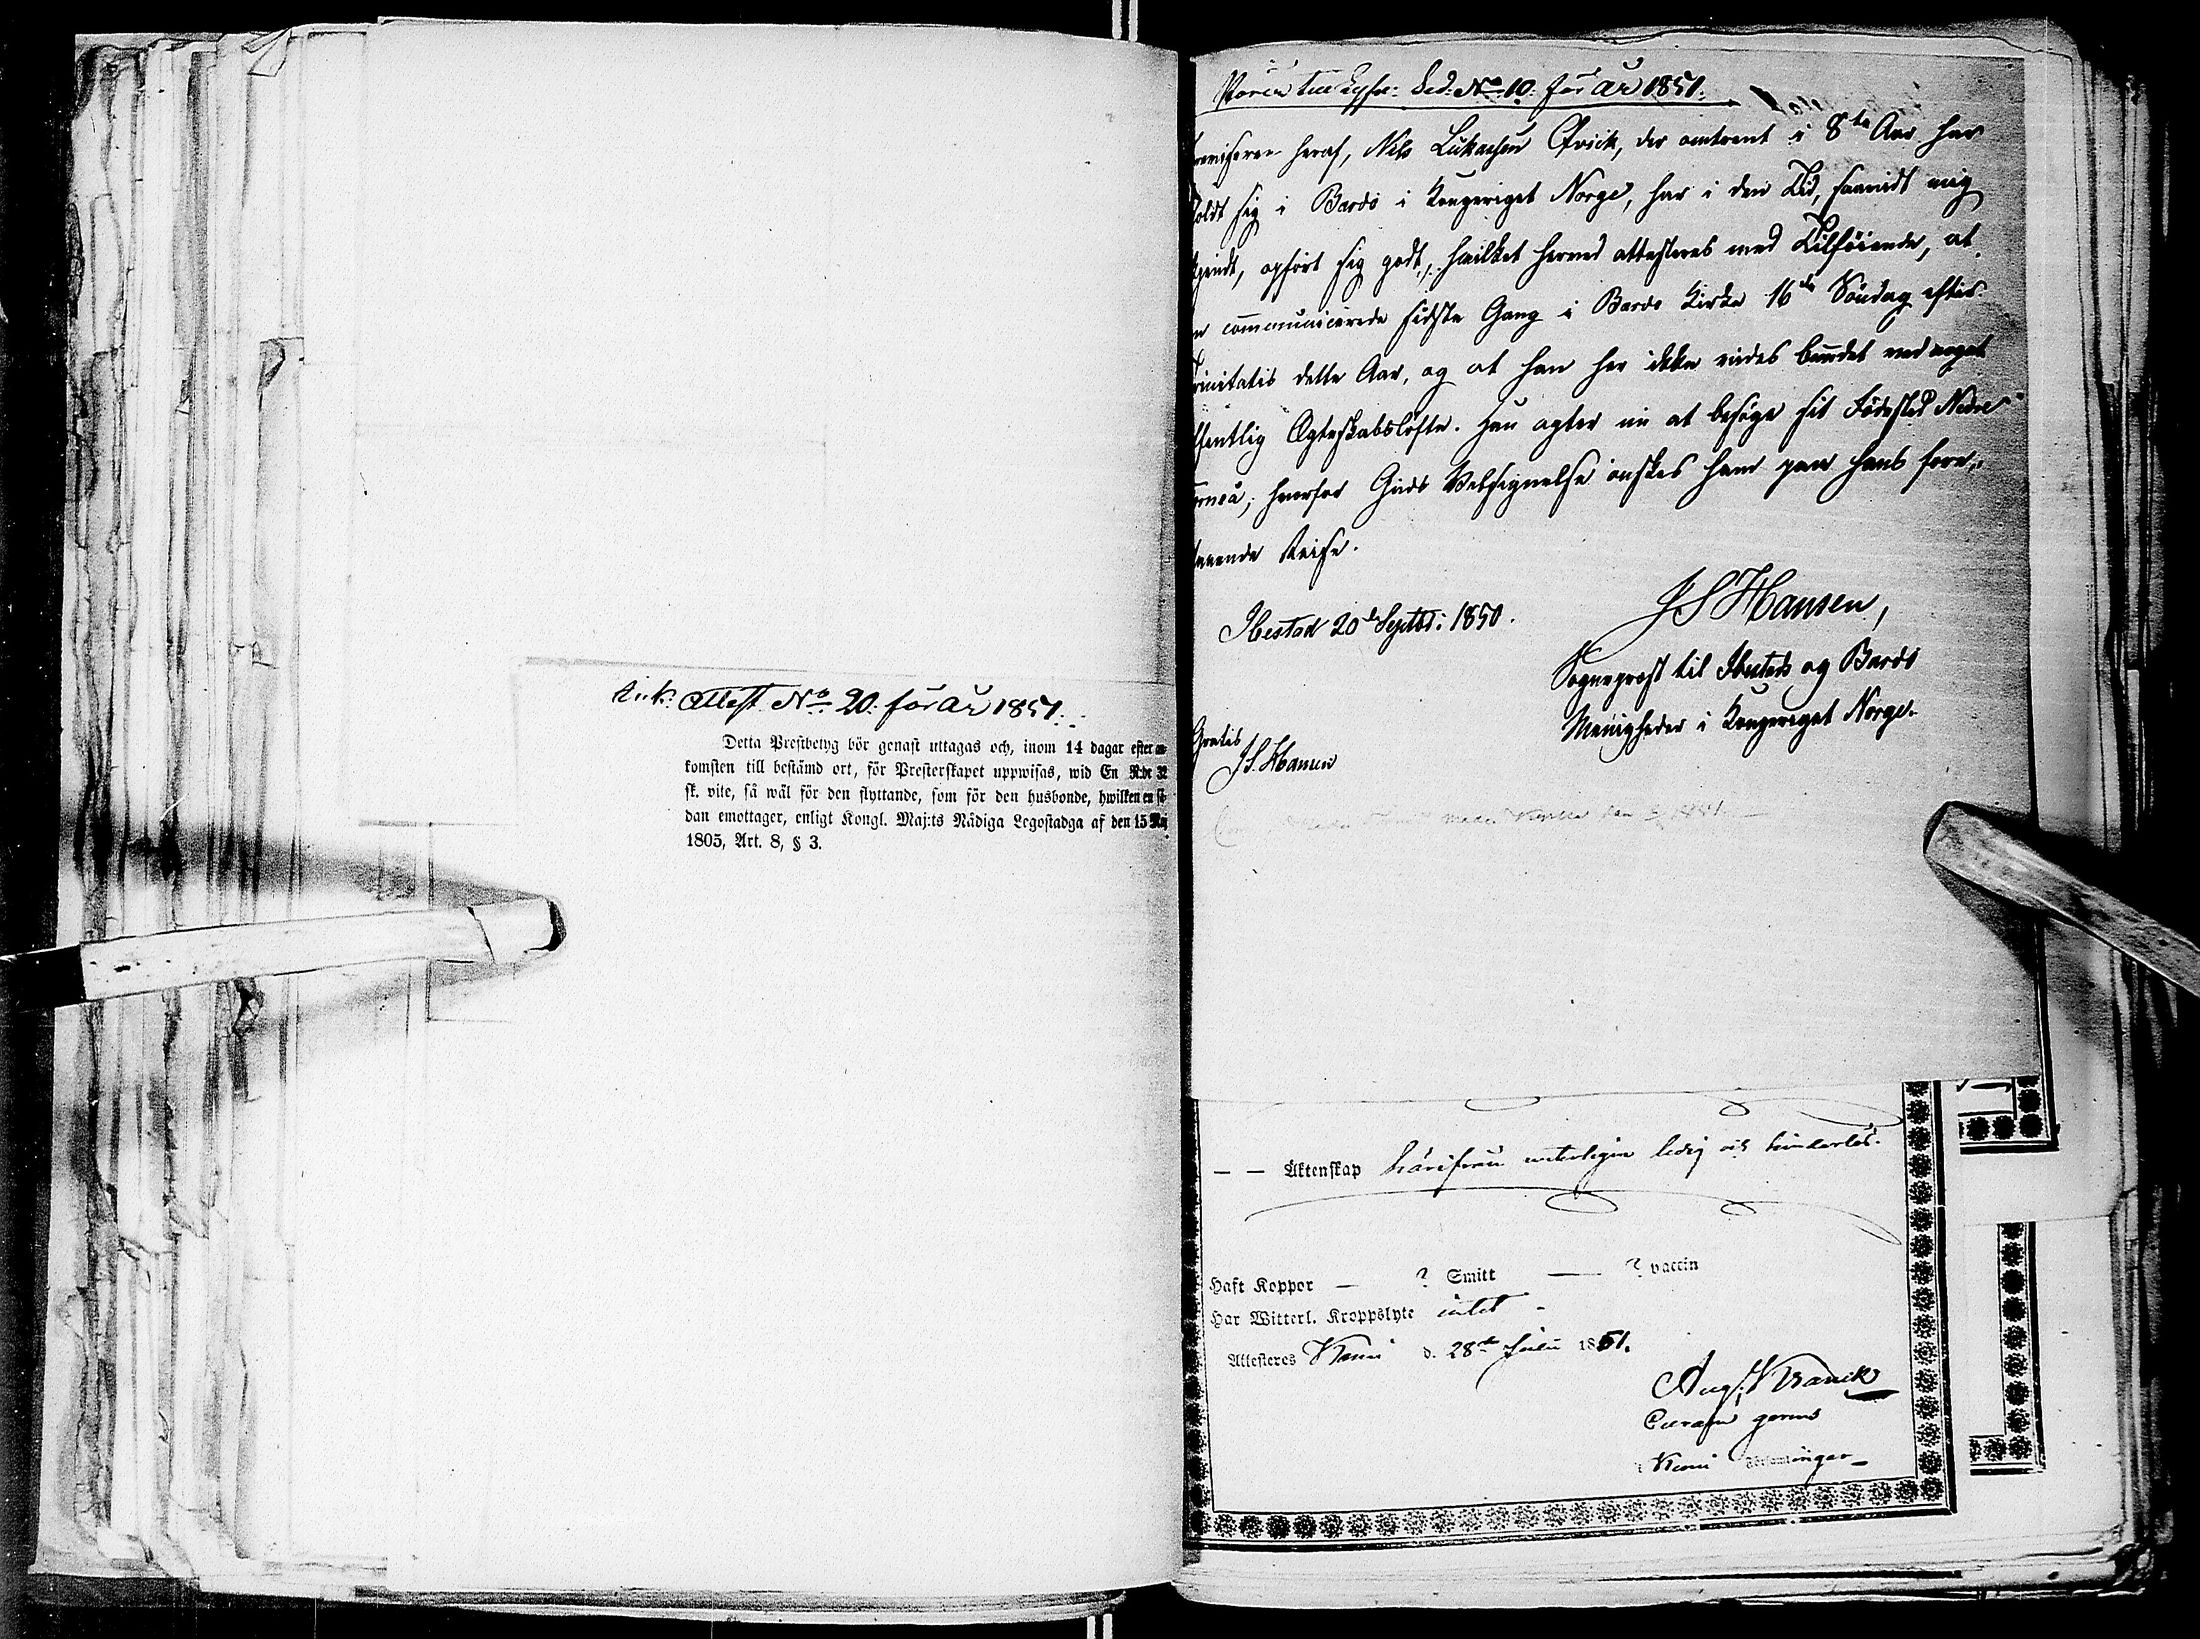 Attest No 20. för år 1851.
Detta Prestbetyg bör genast uttagas och, inom 14 dagar efter an-
komsten till bestämd ort, för Presterskapet uppwisas, wid En R:dr 32
sk. vite, så wäl för den flyttande, som för den husbonde, hwilken en så-
dan emottager, enligt Kongl. Maj:ts Nådiga Legostadga af den 15 Maj
1805, Art. 8, § 3.
No 10. för år 1851.
heraf, Nils Lukasen Qvick, der omtrent i 8te Aar har
oldt sig i Bardo i Kongeriget Norge, har i den Tid, saavidt mig
bekjendt, opført sig godt, hvilket herved attesteres med Tilføiende, at
communicerede sidste Gang i Bardo Kirke 16de Søndag efter
rinitatis dette Aar, og at han her ikke vides bundet ved noget
ffentlig Ægteskabsløfte. Han agter nu at besøge sit Fødested Nedre
orneå, hvorfor Guds Velsignelse ønskes ham paa hans fore-
Reise.
Ibestad 20de Septbr: 1850.
J S Hansen,
Sogneprest til Ibestads og Bardo
Menigheder i Kongeriget Norge.
Gratis
J. S. Hansen
1851.
— — Äktenskap härifrån ledig och hinderlös.
Haft Koppor — ? Smitt — ? vaccin
Har Witterl. Kroppslyte intet
Attesteres Kemi d. 28de Julii 1851.
Aug. Kranck
Kemi Församlingar